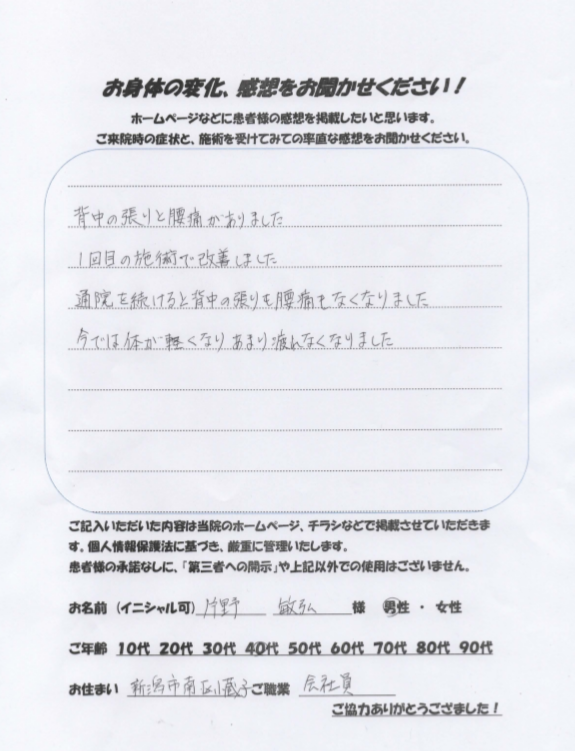 お身体の変化、感想をお聞かせください！
ホームページなどに患者様の感想を掲載したいと思います。
ご来院時の症状と、施術を受けてみての率直な感想をお聞かせください。
背中の張りと腰痛がありました
1回目の施術で改善しました
通院を続けると背中の張りも腰痛もなくなりました
今では体が軽くなりあまり疲れなくなりました
ご記入いただいた内容は当院のホームページ、チラシなどで掲載させていただきま
す。個人情報保護法に基づき、厳重に管理いたします。
患者様の承諾なしに、「第三者への開示」や上記以外での使用はございません。
お名前（イニシャル可） 片野 敏弘 様 男性 ・ 女性
ご年齢 10代 20代 30代 40代 50代 60代 70代 80代 90代
お住まい 新潟市南区小蔵子 ご職業 会社員
ご協力ありがとうござました！